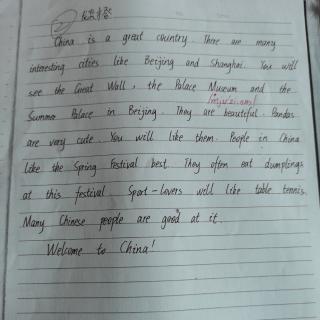 China is a great country. There are many
interesting cities like Beijing and Shanghai. You will
see the Great Wall, the Palace Museum and the
Summer Palace in Beijing. They are beautiful. Pandas
are very cute. You will like them. People in China
like the Spring Festival best. They often eat dumplings
at this festival. Sport-lovers will like table tennis.
Many Chinese people are good at it.
Welcome to China!